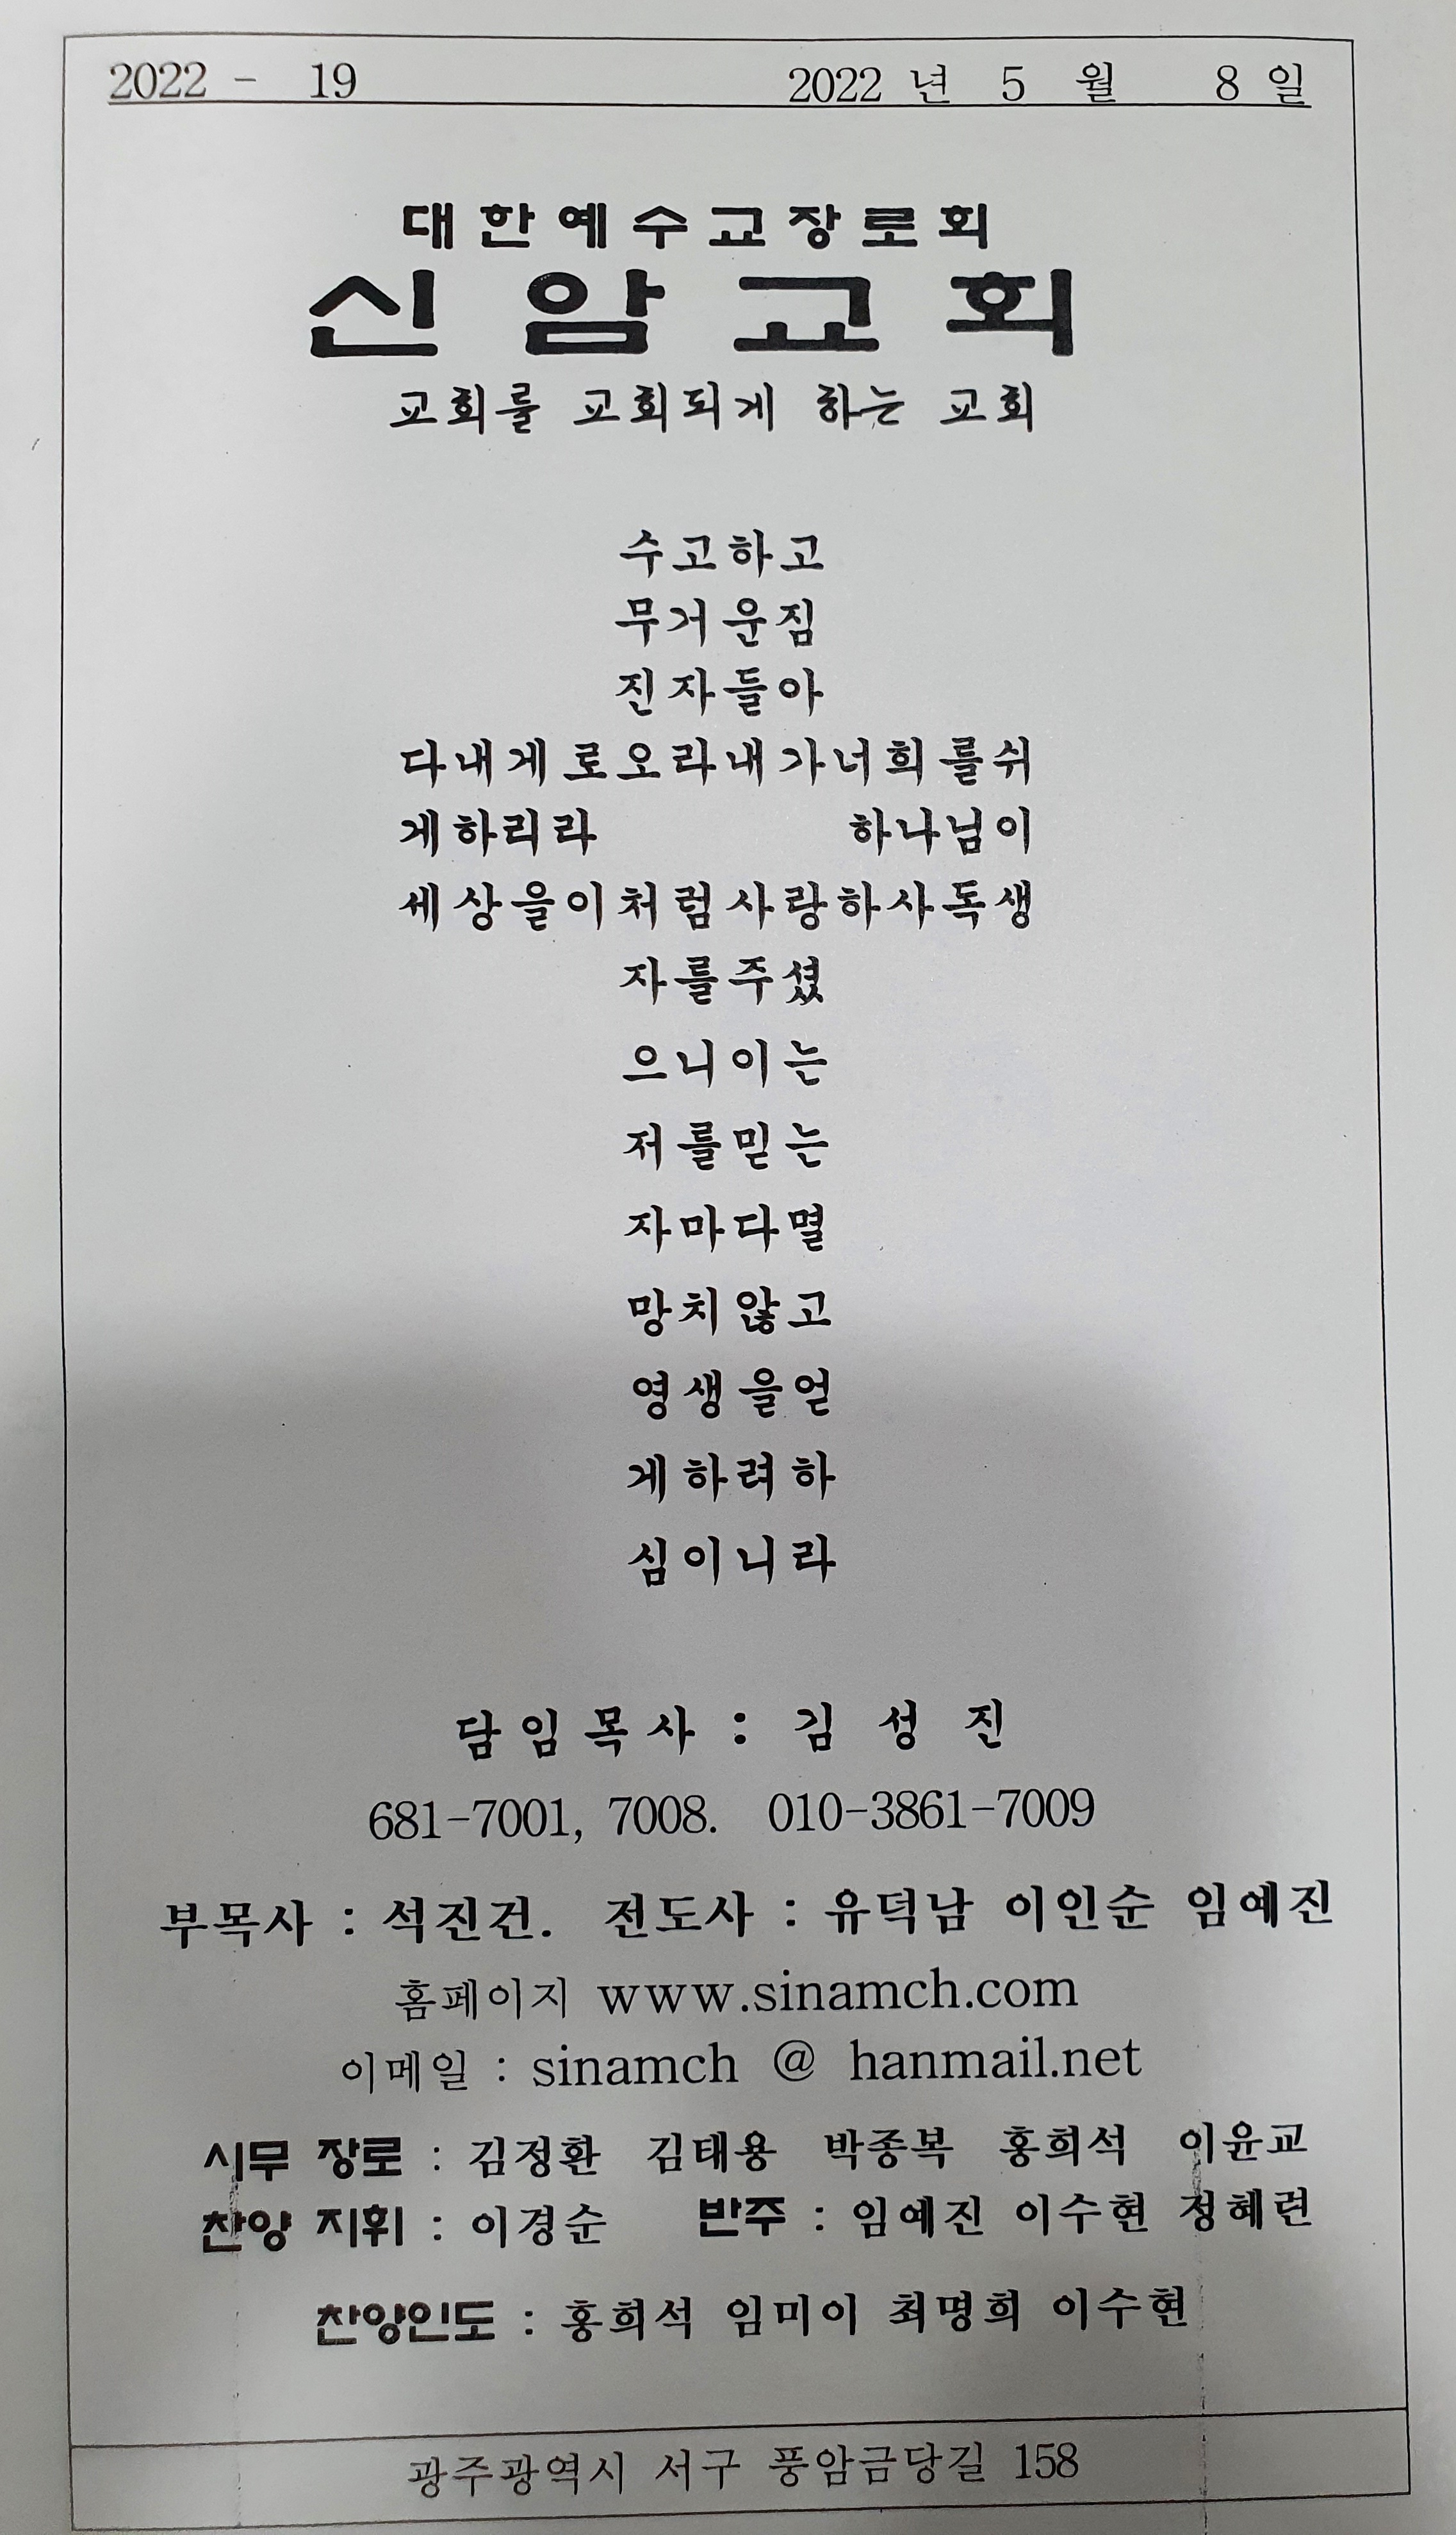 2022 - 19 2022 년 5 월 8 일
대한예수교장로회
신암교회
교회를 교회되게 하는 교회
수고하고
무거운짐
진자들아
다내게로오라내가너희를쉬
게하리라 하나님이
세상을이처럼사랑하사독생
자를주셨
으니이는
저를믿는
자마다멸
망치않고
영생을얻
게하려하
심이니라
담임목사 : 김 성 진
681-7001, 7008. 010-3861-7009
부목사 : 석진건. 전도사 : 유덕남 이인순 임예진
홈페이지 www.sinamch.com
이메일 : sinamch @ hanmail.net
시무 장로 : 김정환 김태용 박종복 홍희석 이윤교
찬양 지휘 : 이경순 반주 : 임예진 이수현 정혜련
찬양인도 : 홍희석 임미이 최명희 이수현
광주광역시 서구 풍암금당길 158